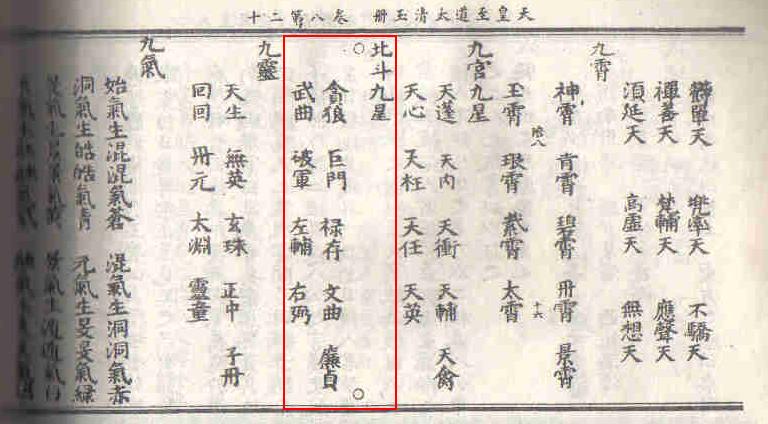 天皇至道太清玉冊 卷八第二十
單天 兜率天 不驕天
禪善天 梵輔天 應聲天
須延天 高虛天 無想天
九霄
神霄 青霄 碧霄 丹霄 景霄
拾八 十六
玉霄 琅霄 紫霄 太霄
九宮九星
天蓬 天內 天衝 天輔 天禽
天心 天柱 天任 天英
北斗九星
貪狼 巨門 祿存 文曲 廉貞
武曲 破軍 左輔 右弼
九靈
天生 無英 玄珠 正中 子丹
回回 丹元 太淵 靈童
九氣
始氣生混混氣蒼 混氣生洞洞氣赤
洞氣生皓皓氣青 元氣生旻旻氣綠